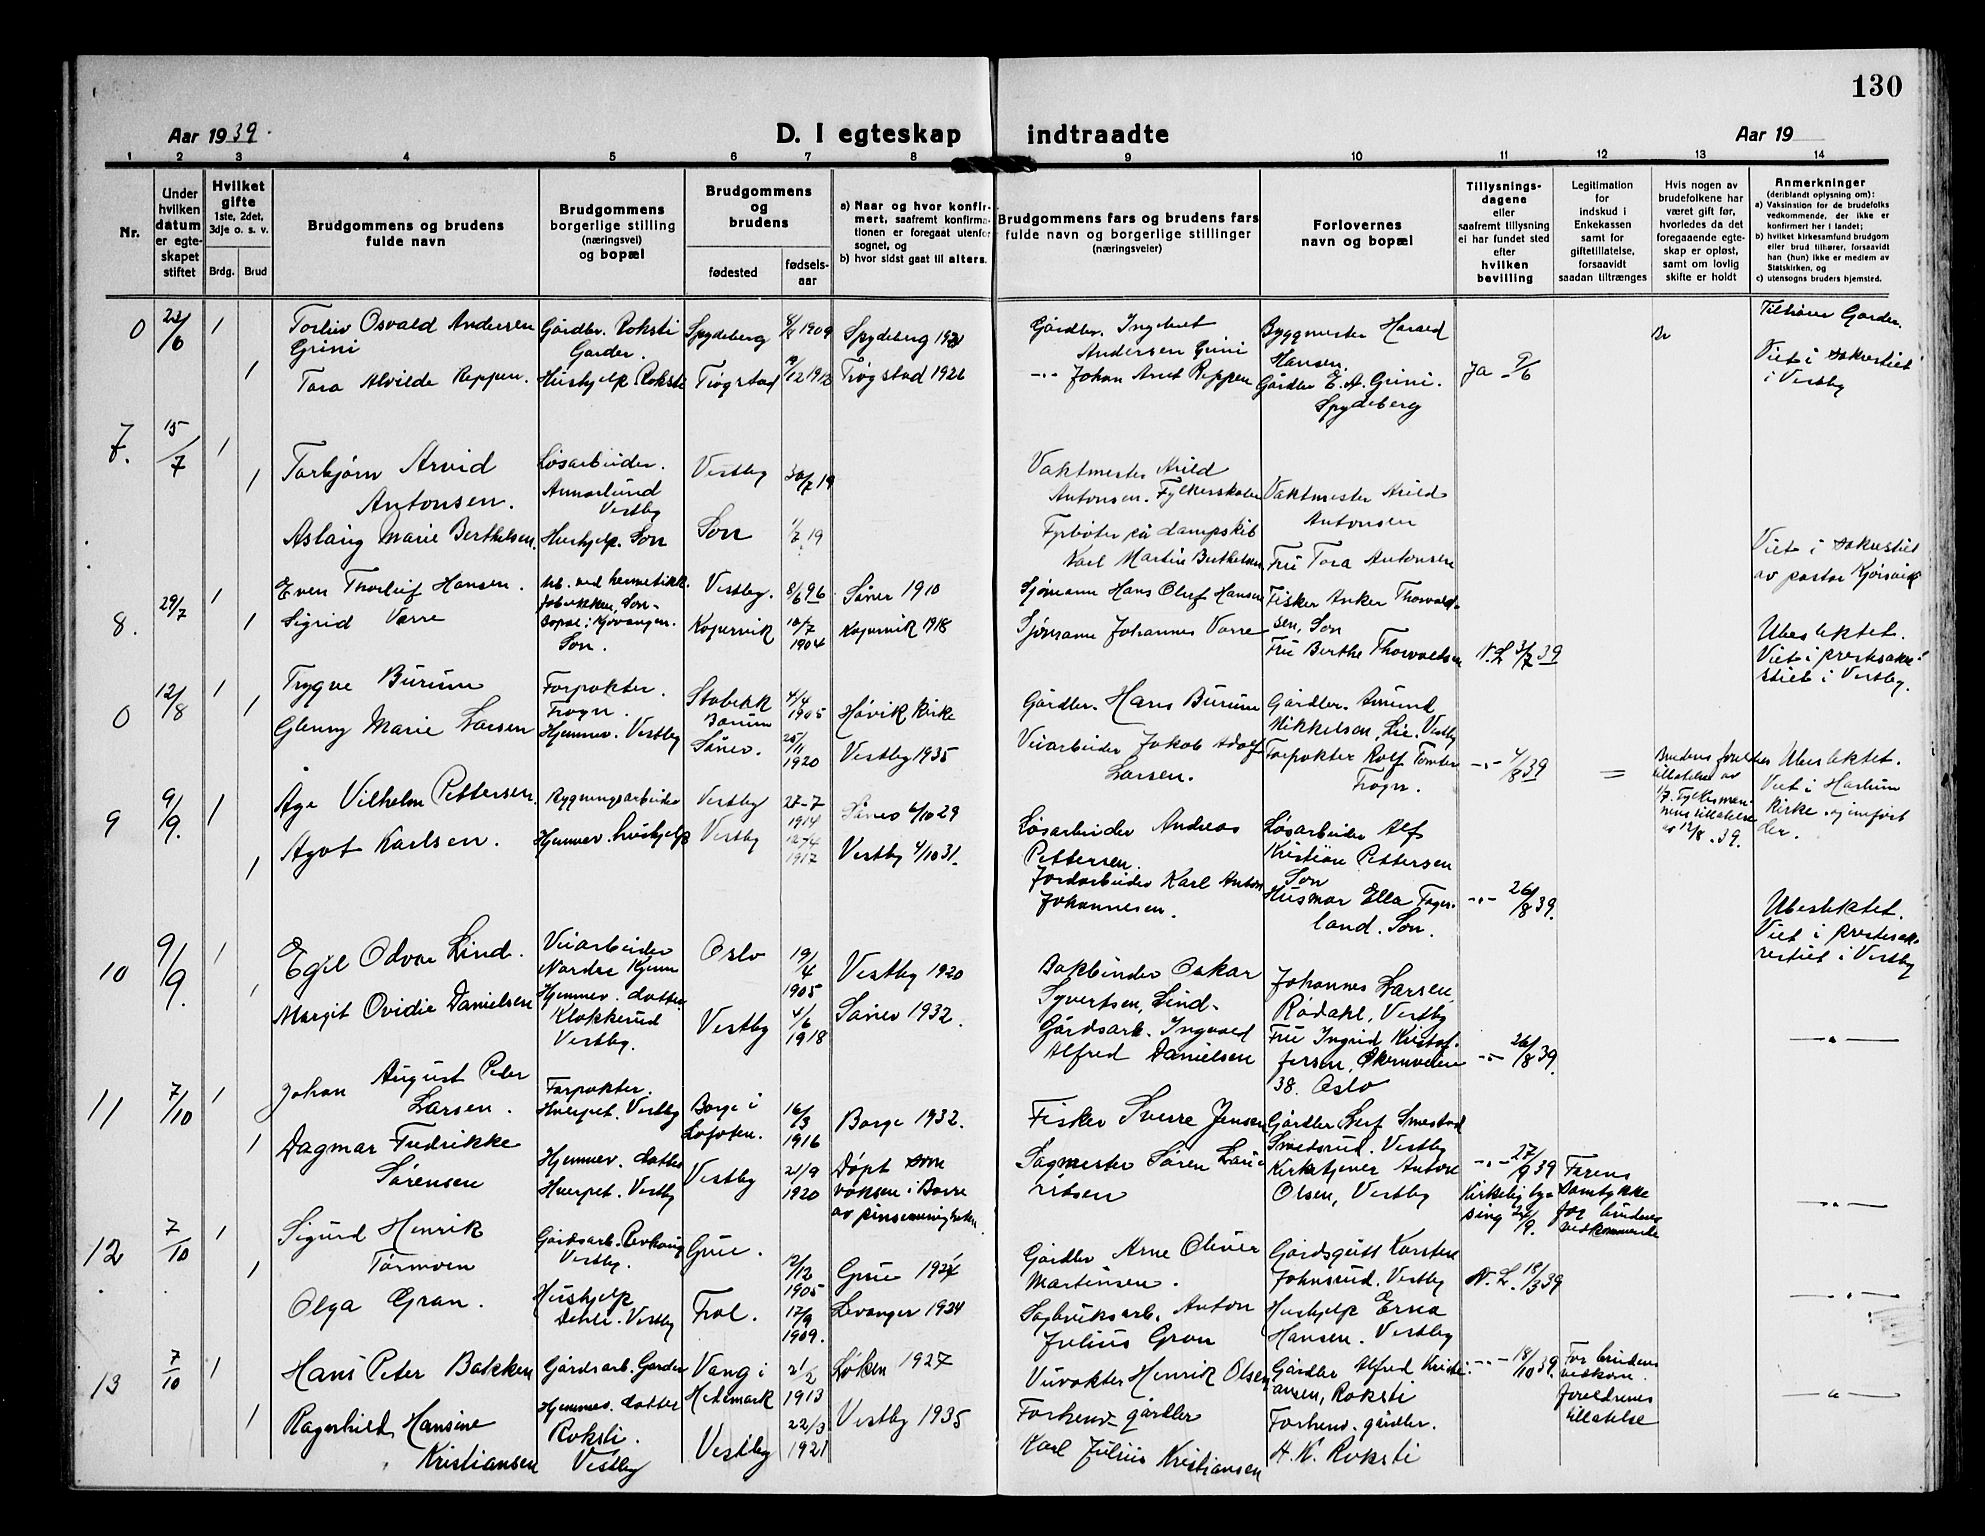 130
Aar 1939.
D. I egteskap indtraadte
Aar 19
1 2 3 4 5 6 7 8 9 10 11 12 13 14
Nr.
Under hvilken datum er egteskapet stiftet
Hvilket gifte
1ste, 2det, 3dje o. s. v.
Brdg. Brud
Brudgommens og brudens fulde navn
Brudgommens borgerlige stilling (næringsvei) og bopæl
Brudgommens og brudens
fødested
fødselsaar
a) Naar og hvor konfirmert, saafremt konfirmationen er foregaat utenfor sognet, og
b) hvor sidst gaat til alters.
Brudgommens fars og brudens fars fulde navn og borgerlige stillinger (næringsveier)
Forlovernes navn og bopæl
Tillysningsdagene eller saafremt tillysning ei har fundet sted efter hvilken bevilling
Legitimation for indskud i Enkekassen samt for giftetillatelse, forsaavidt saadan tiltrænges
Hvis nogen av brudefolkene har været gift før, hvorledes da det foregaaende egteskap er opløst, samt om lovlig skifte er holdt
Anmerkninger
(deriblandt oplysning om):
a) Vaksinstion for de brudefolks vedkommende, der ikke er konfirmert her i landet;
b) hvilket kirkesamfund brudgom eller brud tilhører, forsaavidt han (hun) ikke er medlem av Statskirken, og
c) utensogns bruders hjemsted.
0 1 Torleiv Osvald Andersen Grini
Gårdbr. Roksti Garder. Spydeberg 1909 Spydeberg
Gårdbr. Ingebret Andersen Grini
Byggmester Harald Hansen.
Tilhører Garder.
1 Tora Alvilde Reppen. Hushjelp Roksti Trøgstad 1912 Trøgstad 1926
-"- Johan Reppen
Gårdbr. E. A. Grini. Spydeberg
Ja
Viet i sakrestiet i Vestby
7. 15/7 1 Torbjørn Arvid Antonsen.
Løsarbeider. Vestby Vestby 30/7 19
Vaktmester Arild Antonsen.
Vaktmester Arild Antonsen
1 Aslaug Marie Berthelsen. Hushjelp. Son Son 1/7 19
Fyrbøter på dampskib Karl Martin Berthelsen
Fru Tora Antonsen
Viet i sakrestiet av pastor
8. 29/7 1 Even Thorleif Hansen.
Son. Vestby. 8/6 96 Såner 1910
Sjømann Hans Oluf Hansen
Fisker Anker Thorvaldsen, Son
1 Sigrid Varre Son. Kopervik 1904 Kopervik 1918
Sjømann Johannes Varre
Fru Berthe Thorvaldsen
N. L. 3/7 39
Ubeslektet. Viet i prestesakrestiet i Vestby.
0 12/8 1 Trygve Burum
Forpakter. Frogn. Stabekk Bærum 4/4 1905 Høvik kirke
Gårdbr. Hans Burum
Gårdbr. Amund Mikkelsen, Lie. Vestby
1 Glenny Marie Larsen Hjemmev. Vestby Såner. 1920 Vestby 1935
Veiarbeider Jakob Adolf Larsen.
Forpakter Rolf Tomter Frogn.
-"- 4/8 39
=
Brudens foreldres tillatelse av 1/7. Fylkesmannens tillatelse av 12/8. 39.
Ubeslektet. Viet i kirke.
9 9/9. 1 Åge Vilhelm Pettersen.
Bygningsarbeider Vestby 27-7 1914 Såner 6/10 29
Løsarbeider Andreas Pettersen.
Løsarbeider Alf Kristian Pettersen Son
1 Agot Karlsen. Hjemmev. hushjelp Vestby 12-4 1917 Vestby 4/10 31.
Jordarbeider Karl Anton Johannesen.
Husmor Ella Fagerland. Son.
-"- 26/8 39.
Ubeslektet. Viet i prestesakrestiet i Vestby
10 9/9. 1 Egil Odvar Lind.
Veiarbeider Nordre Oslo 19/4 1905 Vestby 1920
Bokbinder Oskar Syvertsen, Lind.
Johannes Larsen, Rødahl, Vestby
1 Margit Ovidie Danielsen Hjemmev. datter. Klokkerud Vestby. Vestby 4/6 1918 Såner 1932.
Gårdsarb. Ingvald Alfred Danielsen
Fru Ingrid Kristoffersen, 38. Oslo
-"- 26/8 39.
-"-
11 7/10 1 Johan August Peder Larsen.
Forpakter. Hverpet. Vestby Borge i Lofoten. 16/3 1916 Borge 1932.
Fisker Sverre Jensen
Gårdbr Smedsrud. Vestby
1 Dagmar Fredrikke Sørensen Hjemmev. datter Hverpet. Vestby Vestby 21/9 1920 Døpt som voksen i av pinsemenigheten
Sagmester Søren Lauritsen
Kirketjener Anton Olsen, Vestby
-"- 27/9 39 Kirkelig lysing 24/9.
Farens samtykke for brudens vedkommende
-"-
12 7/10 1 Sigurd Henrik Tørmoen
Gårdsarb. Vestby. Grue. 2/12 1905 Grue
Gårdbr Arne Oliver Martinsen.
Gårdsgutt Karsten Johnsrud. Vestby
N. L. 39
1 Olga Gran. Hushjelp Dehli. Vestby Frol. 17/9 1909. Levanger 1924
Sagbruksarb. Anton Julius Gran
Hushjelp Erna Hansen. Vestby
-"-
13 7/10 1 Hans Peter Bakken
Gårdsarb. Garder Vang i Hedmark 2/2 1913 Løken 1927
Veivokter Henrik Olsen
Gårdbr Alfred Kristiansen, Roksti
-"- 18/10 39.
For brudens vedkom. foreldrenes tillatelse
-"-
1 Ragnhild Hansine Kristiansen Hjemmev. datter Roksti. Vestby Vestby 22/3 1921 Vestby 1935
Forhenv. gårdbr Karl Julius Kristiansen
Forhenv. gårdbr. H. K. Roksti